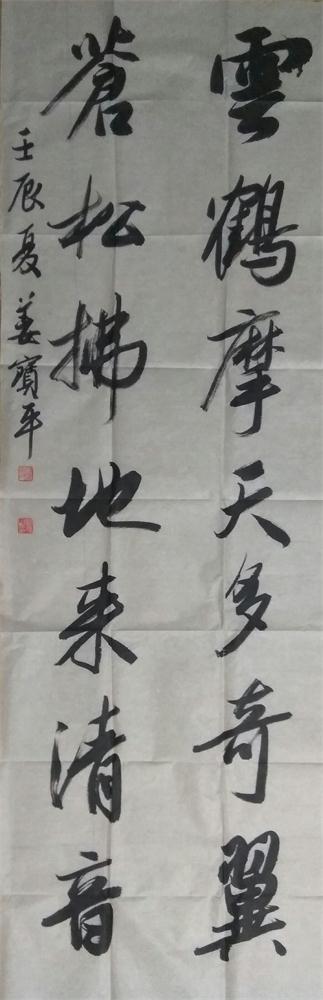 雲鶴摩天多奇翼
蒼松拂地来清音
壬辰夏姜寶平